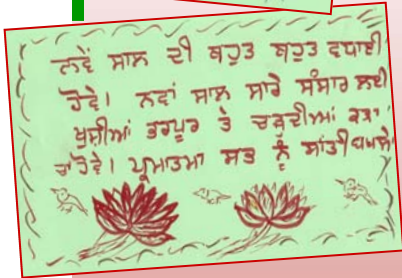 ਨਵੇਂ ਸਾਲ ਦੀ ਬਹੁਤ ਬਹੁਤ ਵਧਾਈ
ਹੋਵੇ। ਨਵਾਂ ਸਾਲ ਸਾਰੇ ਸੰਸਾਰ ਲਈ
ਖੁਸ਼ੀਆਂ ਭਰਪੂਰ ਤੇ ਚੜ੍ਹਦੀਆਂ
ਹੋਵੇ। ਪ੍ਰਮਾਤਮਾ ਸਭ ਨੂੰ ਸ਼ਾਂਤੀ